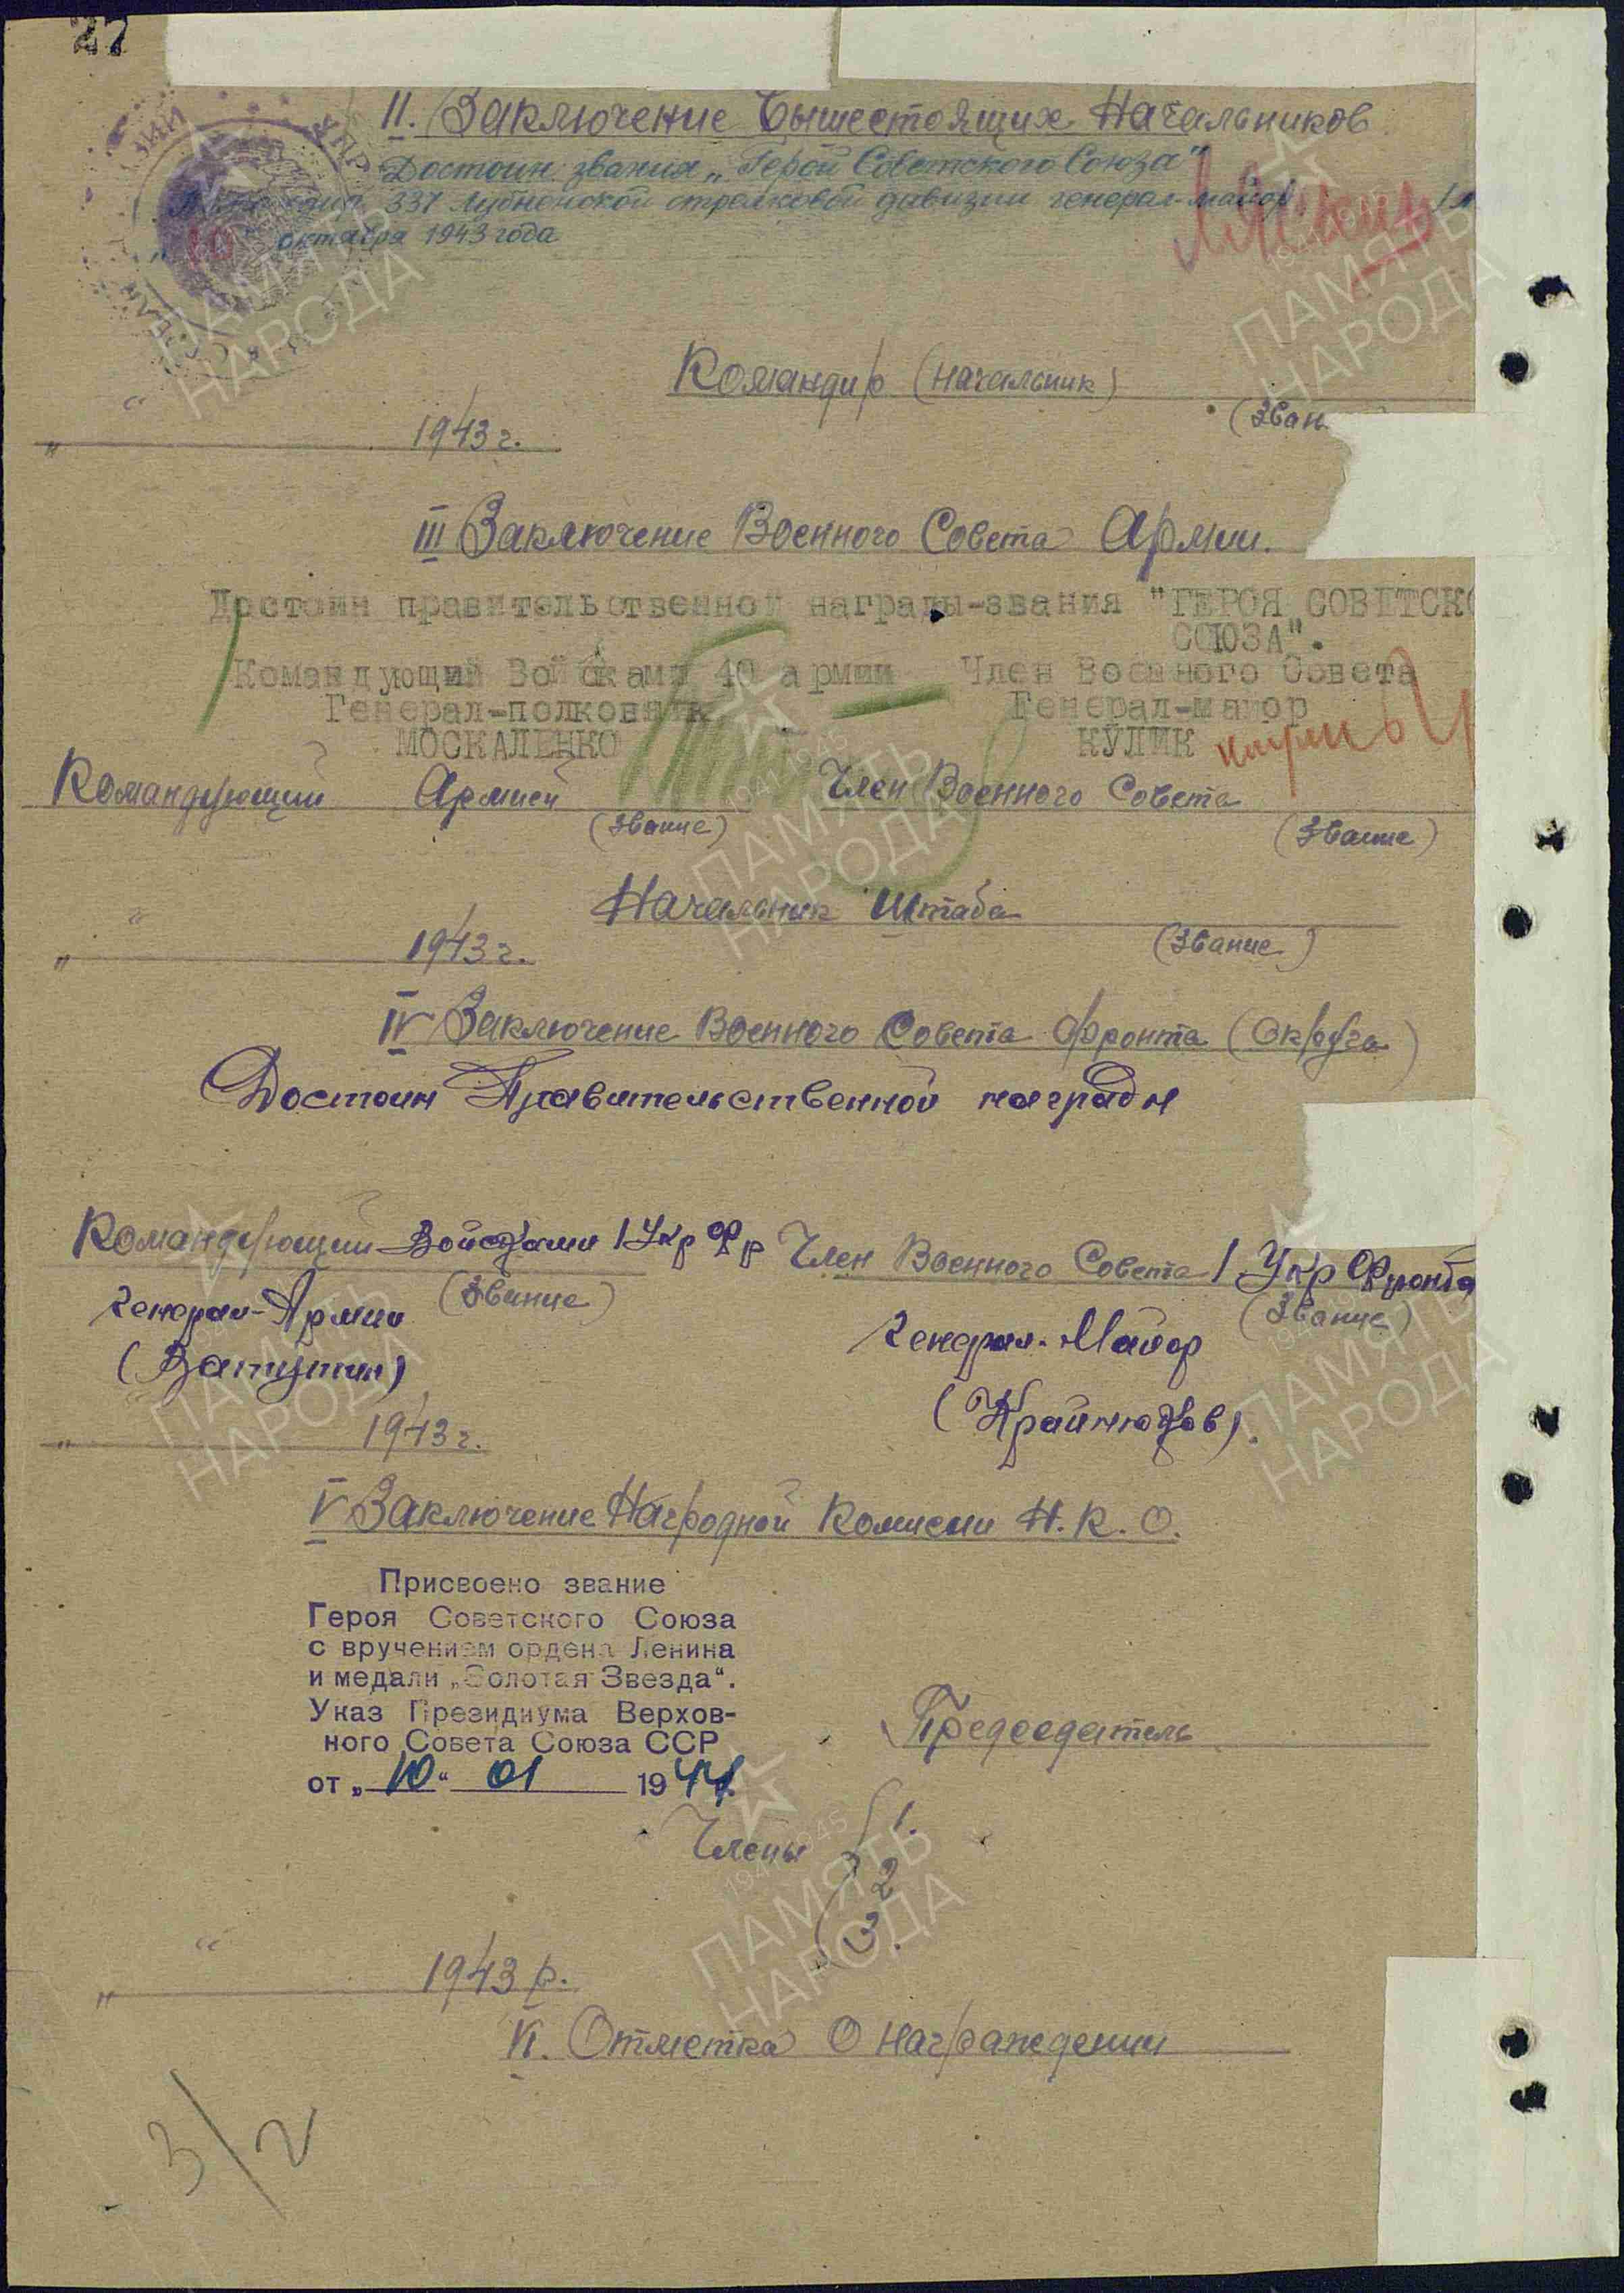 27
II. Заключение Вышестоящих Начальников
Достоин звания „Герой Советского Союза"
337 Лубненской стрелковой дивизии генерал-майор
„10" октября 1943 года
Командир (начальник)
(Зван
„ " 1943 г.
III Заключение Военного Совета Армии.
Достоин правительственной награды-звания "ГЕРОЯ СОВЕТСКО
СОЮЗА".
Командующий Войсками 40 армии Член Военного Совета
Генерал-полковник Генерал-майор
МОСКАЛЕНКО КУЛИК
Командующий Армией Член Военного Совета
(Звание) (Звание)
Начальник Штаба
(Звание)
„ " 1943 г.
IV Заключение Военного Совета Фронта (Округа)
Достоин Правительственной награды
Командующий Войсками 1 Укр Фр Член Военного Совета 1 Укр Фронта
(Звание) (Звание)
Генерал-Армии Генерал-Майор
(Ватутин) (Крайнюков).
„ 1943 г.
V Заключение Наградной Комисии Н.К.О.
Присвоено звание
Героя Советского Союза
с вручением ордена Ленина
и медали „Золотая Звезда".
Указ Президиума Верхов-
ного Совета Союза ССР
от „10" 01 1944
Председатель
Члены
1.
2
3.
„ " 1943 р.
VI. Отметка О награждении
3/2
ПАМЯТЬ
НАРОДА
1941-1945
ПАМЯТЬ
НАРОДА
1941-1945
ПАМЯТЬ
НАРОДА
ПАМЯТЬ
НАРОДА
ПАМЯТЬ
НАРОДА
1941-1945
ПАМЯТЬ
НАРОДА